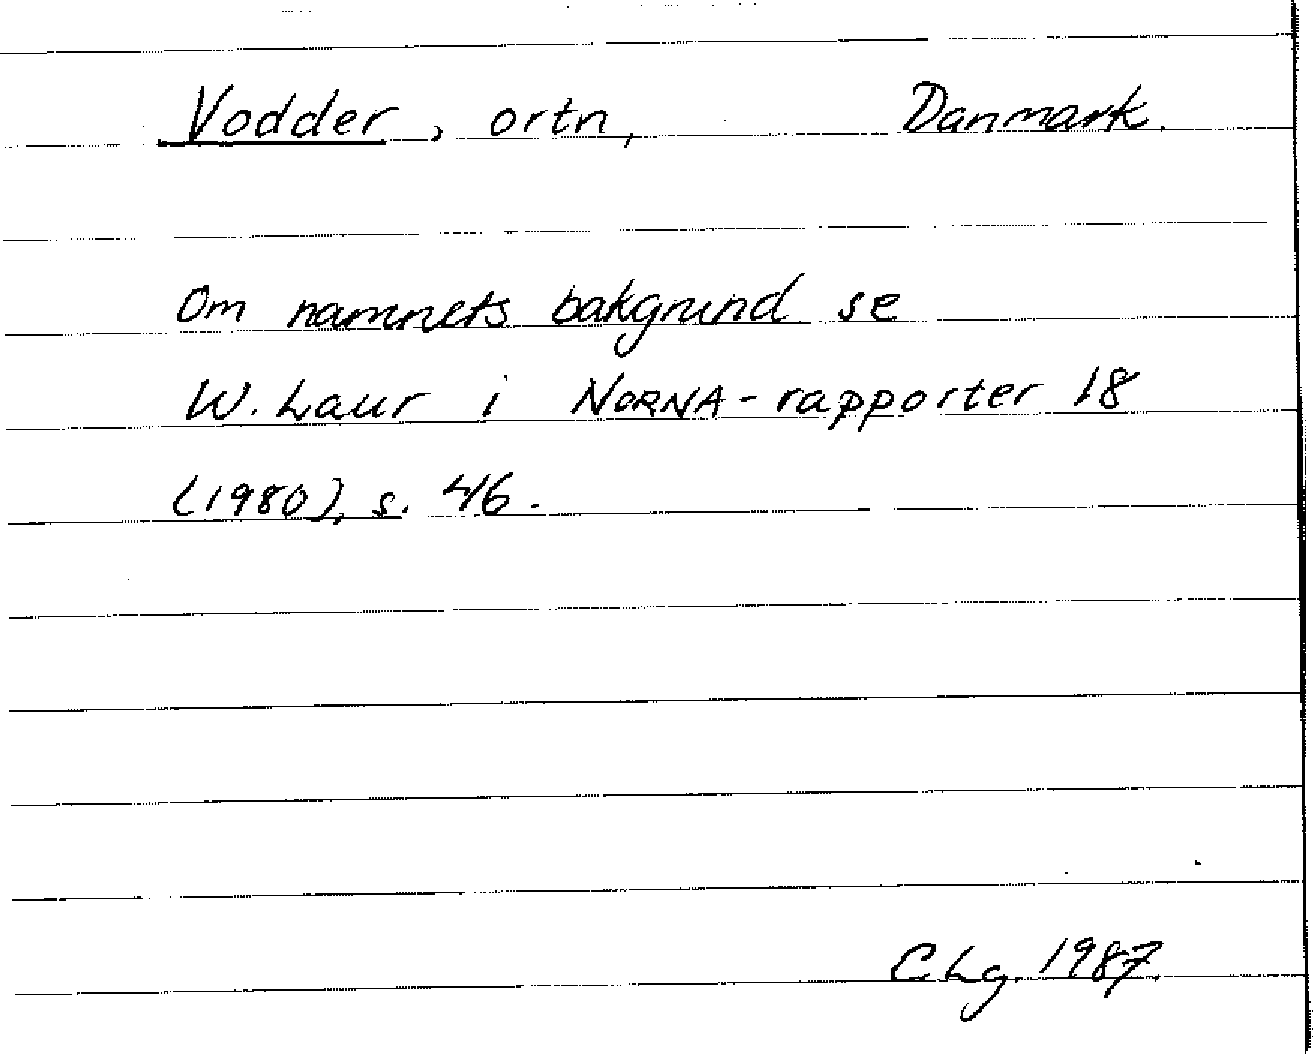 Vodder, ortn, Danmark.
Om namnets bakgrund se
W. Laur i NORNA-rapporter 18
(1980), s. 46.
CLg. 1987.